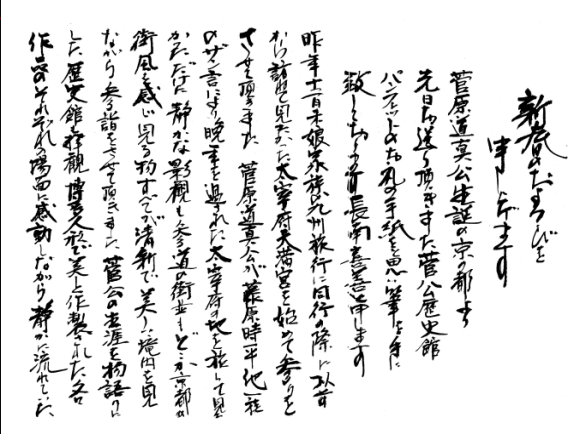 新春のおよろこびを
申し上げます
菅原道真公生誕の京の都より
先日お送り頂きました菅公歴史館
パンフレットのお礼の手紙を思い筆を手に
致しております長南喜善と申します
昨年十一月末娘家族と九州旅行に同行の際に以前
から訪れて見たかった太宰府天満宮を始めて参りを
させて頂きました 菅原道真公が藤原時平他一族
のザン言により晩年を過された太宰府の地を旅して見た
かただけに静かな景観も参道の街並もどこか京都の
街風を感じ見る物すべてが清新で美しい境内を見
ながら参詣をさせて頂きました 菅公の生涯を物語りに
した歴史館を拝観 博多人形で美しく作製された各
作品のそれぞれの場面に感動しながら静かに流れていた